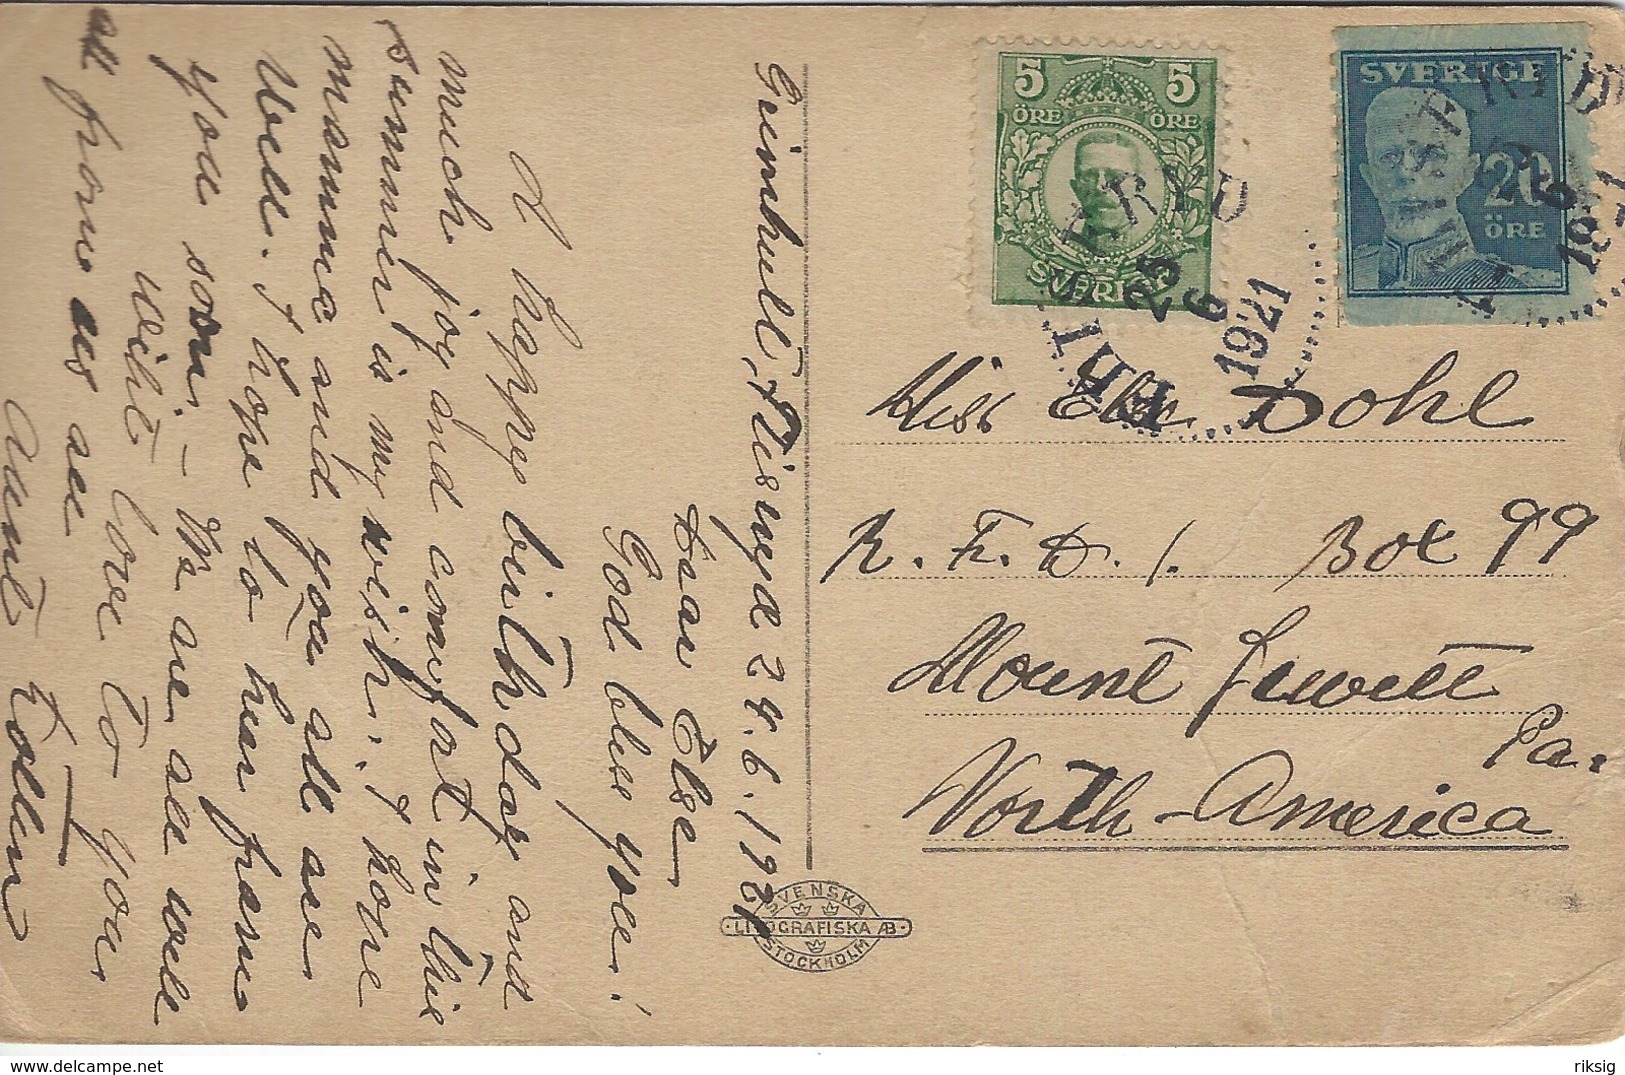 Grimhult, Hisryd 24.6.1921
Dear Else
God bless you!
A happy birthday and
much joy and comfort in the
summer is my wish. I hope
mamma and you all are
Well. I hope to hear from
You soon. – We are all well
With love to you
all from us all
Aunt
5 5
ÖRE ÖRE
SVERIGE
SVERIGE
20
ÖRE
25
6
1921
Miss Else Dohl
R. F. D. 1. Box 99
Mount Jewett
Pa.
North-America
SVENSKA
LITOGRAFISKA AB
STOCKHOLM
riksig